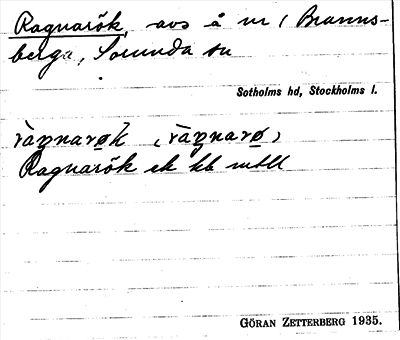 Ragnarök, avs å nr 1 Branns-
berga, Sorunda sn
Sotholms hd, Stockholms l.
ràŋnarøk (ràŋnarø)
Ragnarök ek kb
GÖRAN ZETTERBERG 1935.